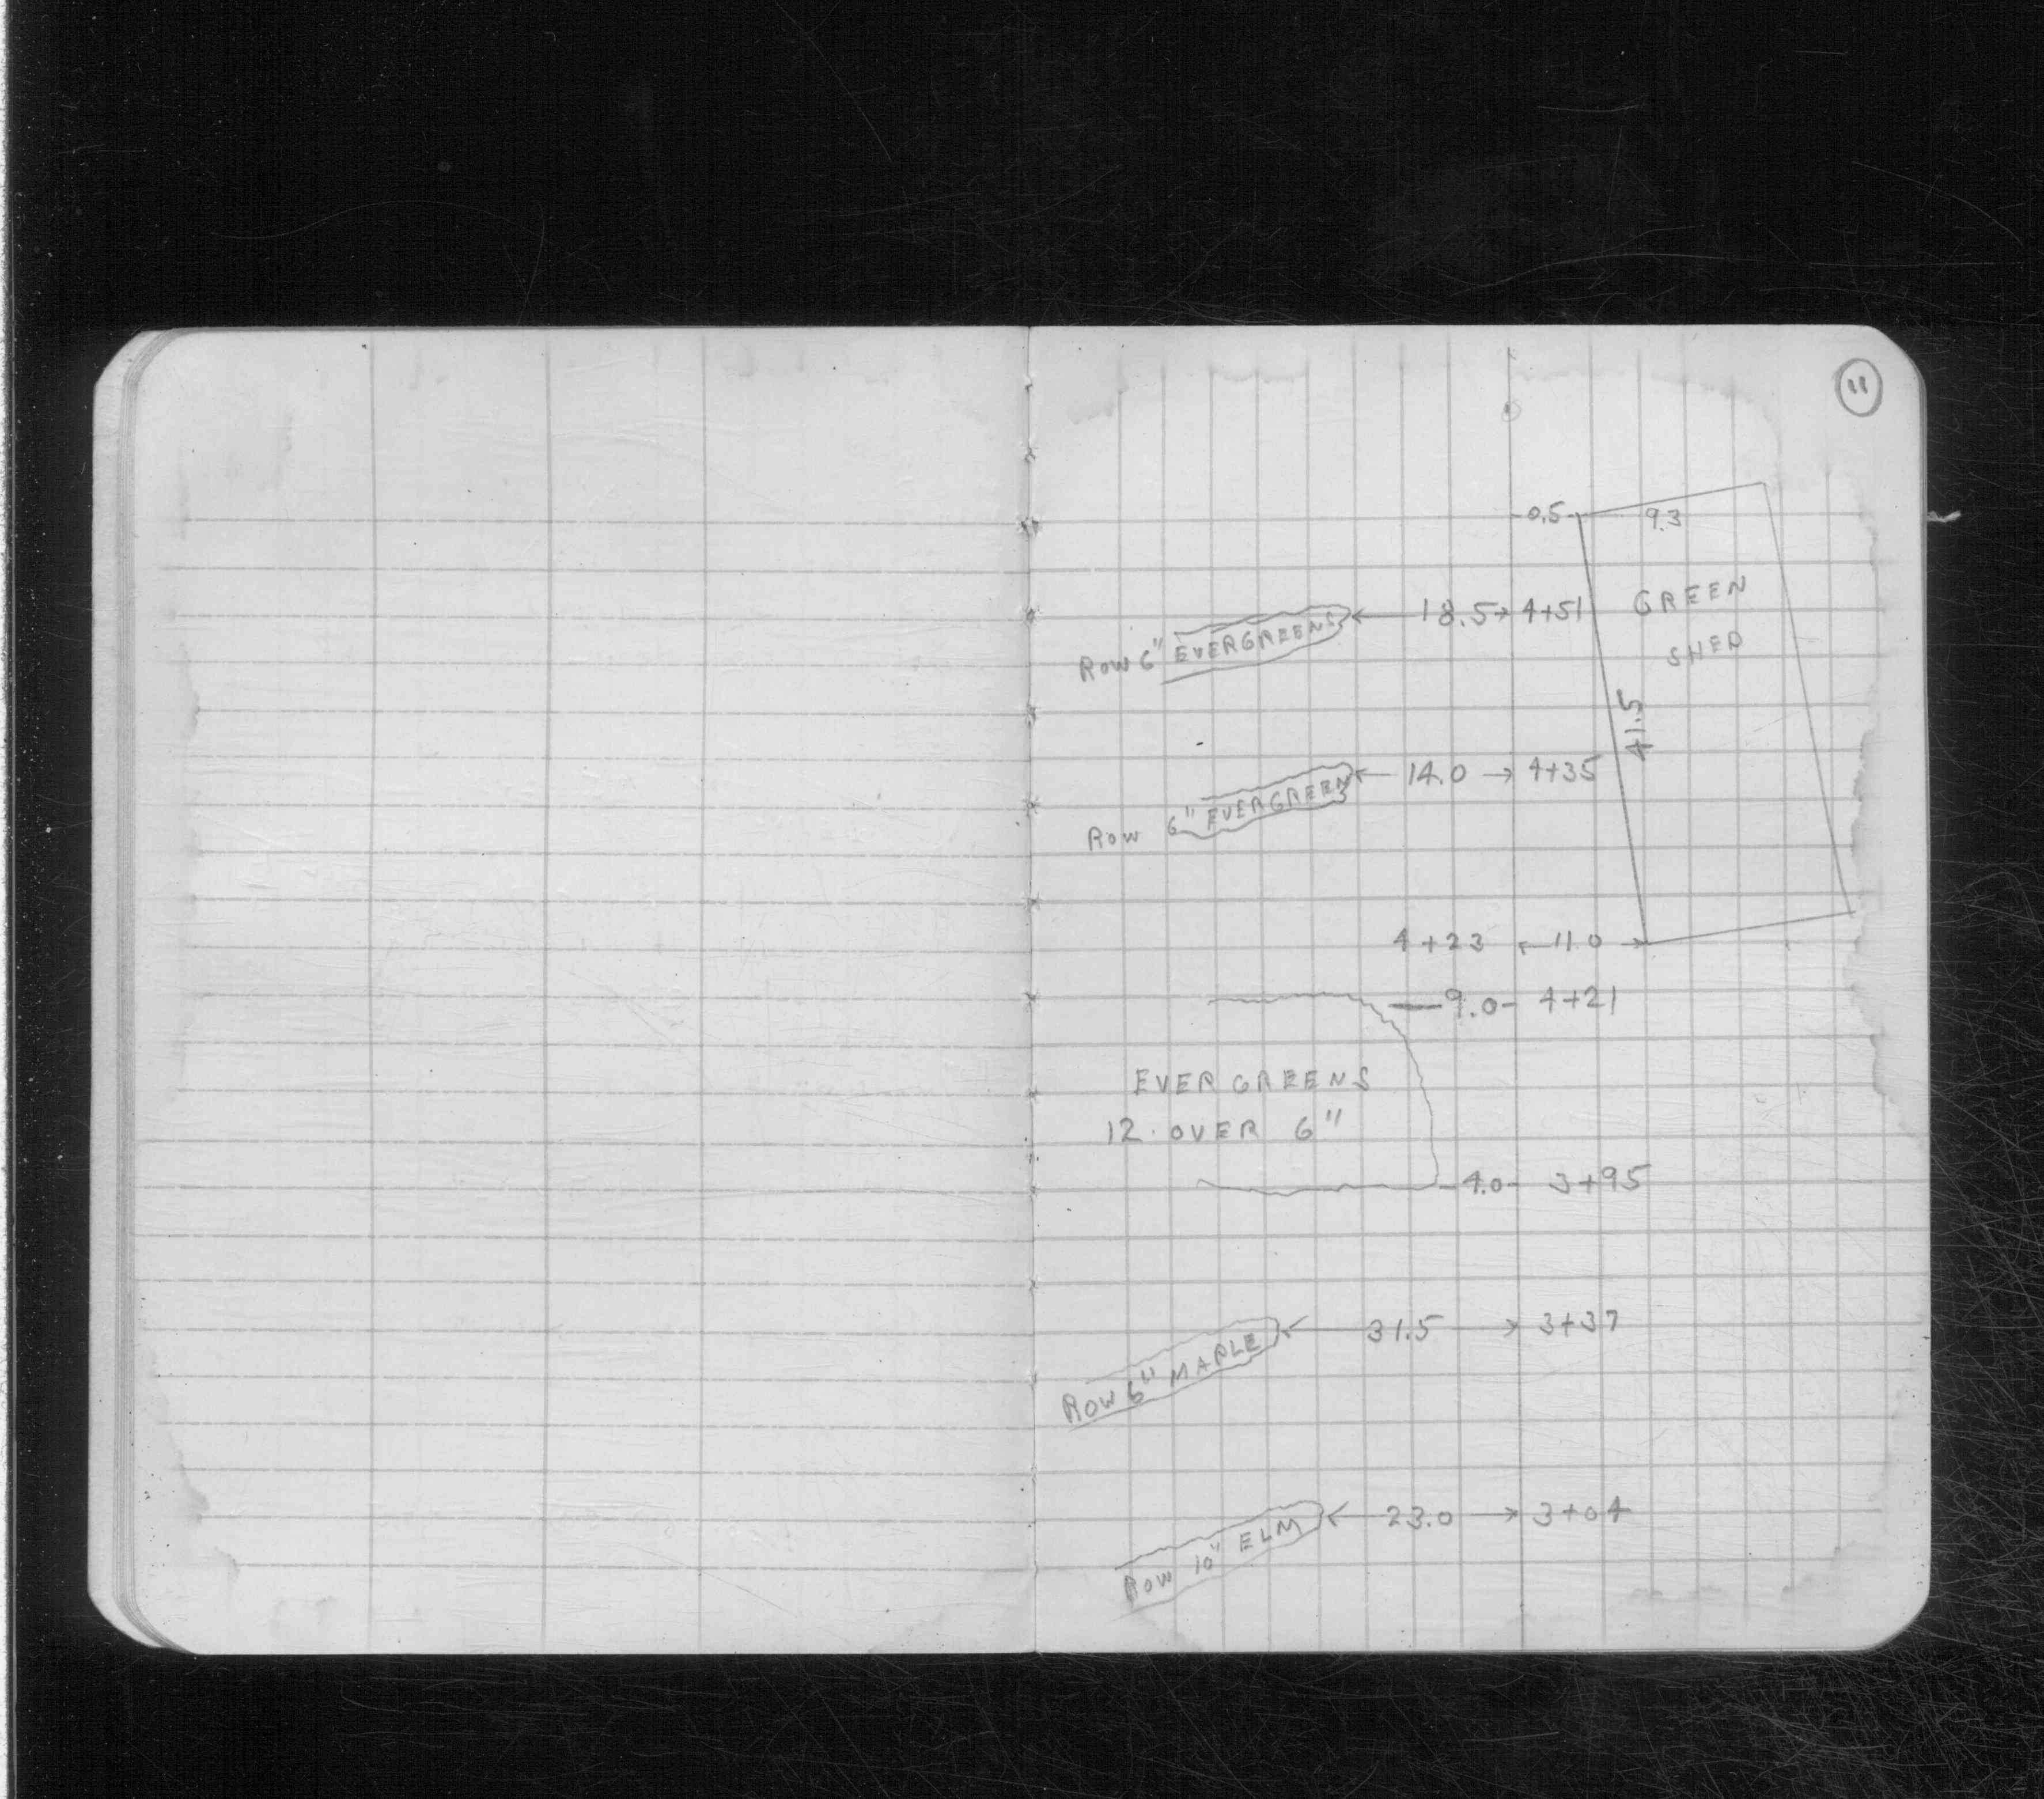 11
0.5 9.3
18.5 4+51 GREEN
ROW 6" EVERGREENS
SHED
41.5
14.0 4+35
ROW 6" EVERGREEN
4+23 11.0
9.0 4+21
EVERGREENS
12 OVER 6"
4.0 3+95
31.5 3+37
ROW 6" MAPLE
23.0 3+04
ROW 10" ELM